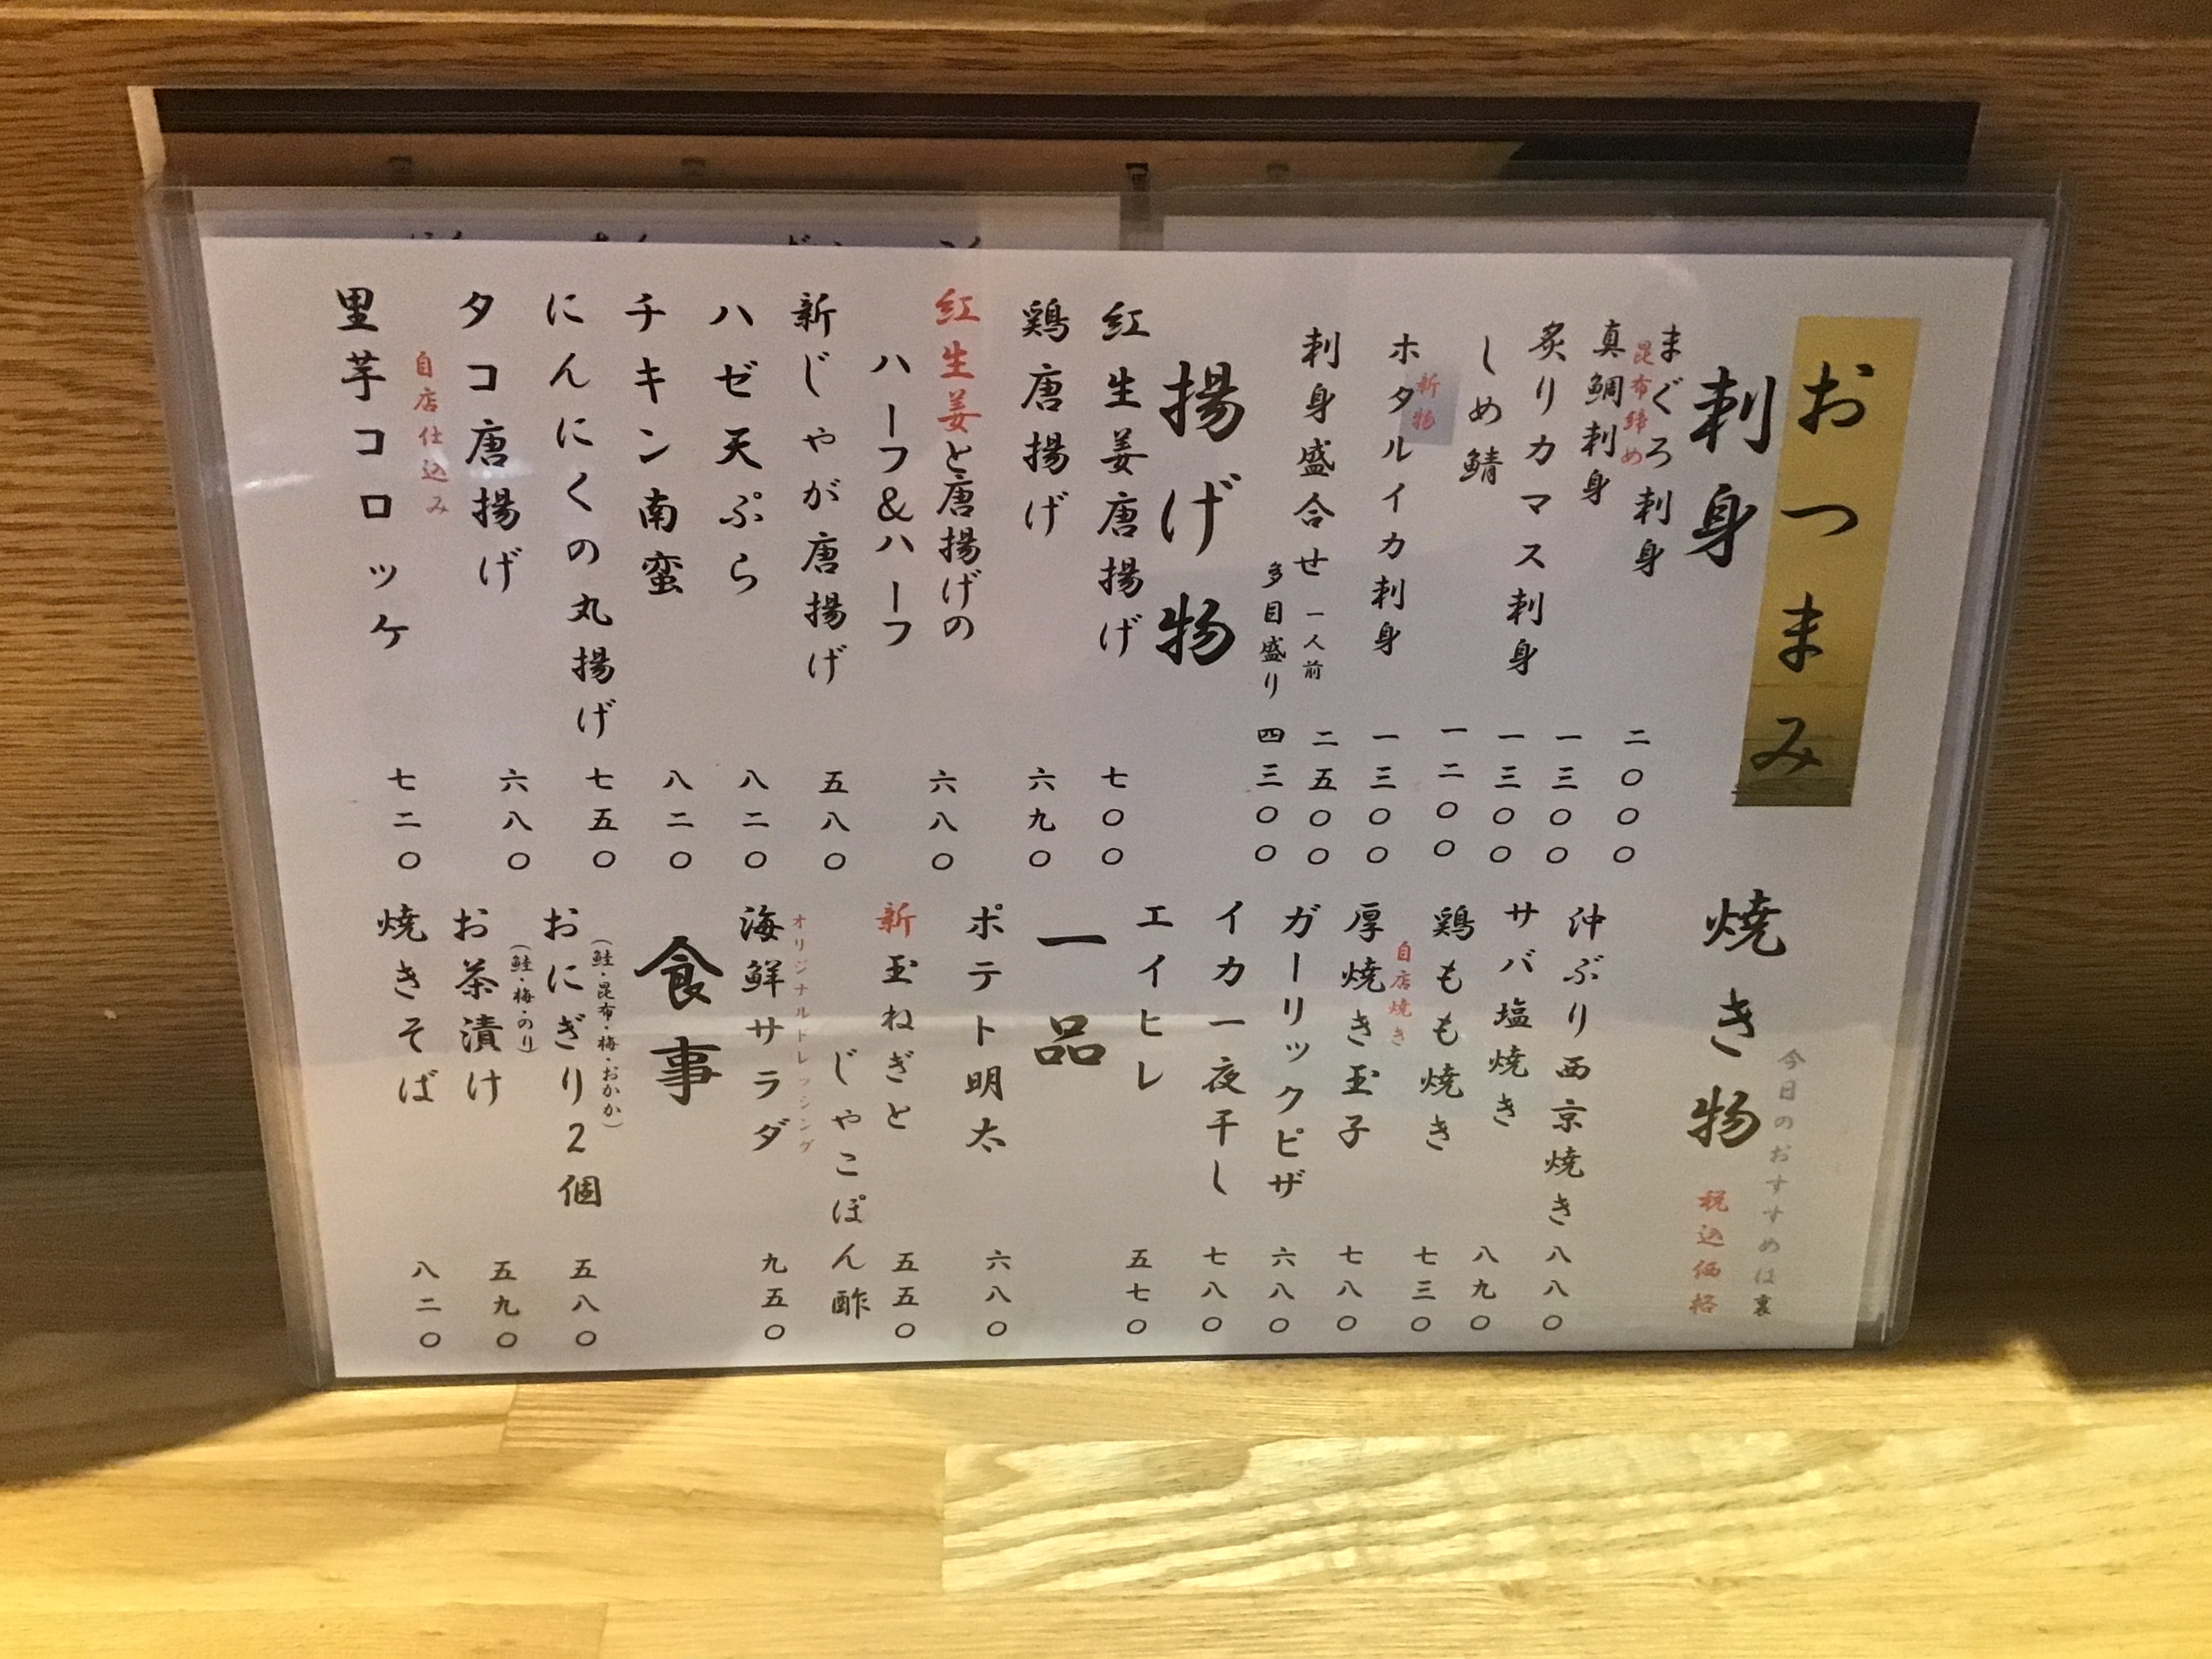 おつまみ
刺身
まぐろ刺身 二〇〇〇
昆布締め
真鯛刺身 一三〇〇
炙りカマス刺身 一三〇〇
しめ鯖 一二〇〇
新物
ホタルイカ刺身 一三〇〇
刺身盛合せ 一人前 二五〇〇
多目盛り 四三〇〇
揚げ物
紅生姜唐揚げ 七〇〇
鶏唐揚げ 六九〇
紅生姜と唐揚げの
ハーフ&ハーフ 六八〇
新じゃが唐揚げ 五八〇
ハゼ天ぷら 八二〇
チキン南蛮 八二〇
にんにくの丸揚げ 七五〇
タコ唐揚げ 六八〇
自店仕込み
里芋コロッケ 七二〇
今日のおすすめは裏
焼き物
税込価格
沖ぶり西京焼き 八八〇
サバ塩焼き 八九〇
鶏もも焼き 七三〇
自店焼き
厚焼き玉子 七八〇
ガーリックピザ 六八〇
イカ一夜干し 七八〇
エイヒレ 五七〇
一品
ポテト明太 六八〇
新玉ねぎと
じゃこぽん酢 五五〇
オリジナルドレッシング
海鮮サラダ 九五〇
食事
(鮭・昆布・梅・おかか)
おにぎり2個 五八〇
(鮭・梅・のり)
お茶漬け 五九〇
焼きそば 八二〇